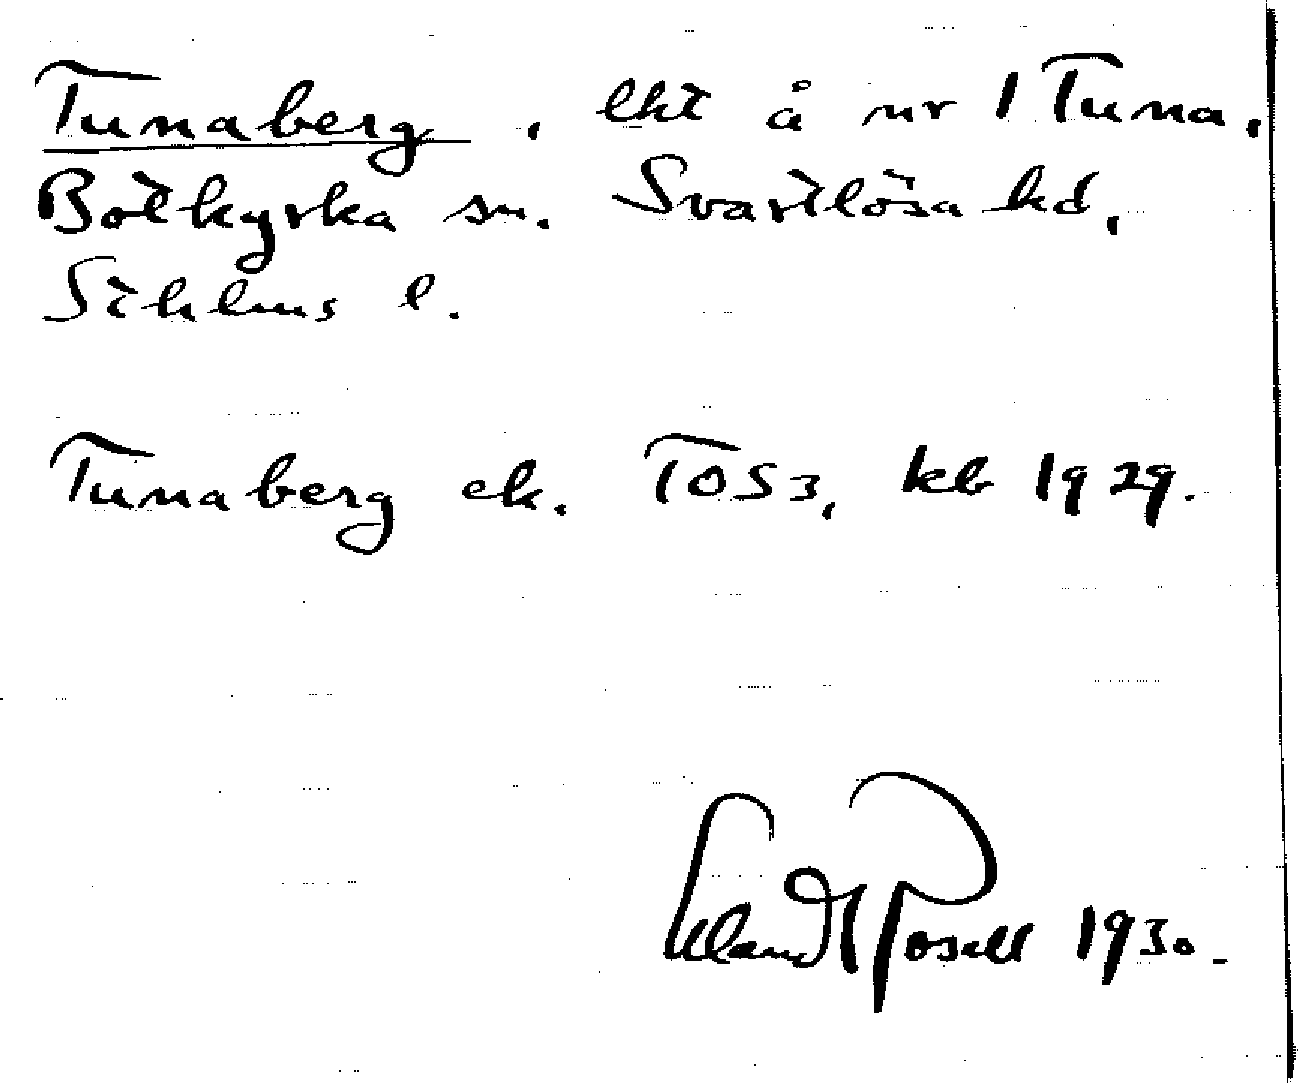 Tunaberg, lht å nr 1 Tuna,
Botkyrka sn. Svartlösa hd,
Sthlms l.
Tunaberg ek. TOS3, kb 1929.
1930.